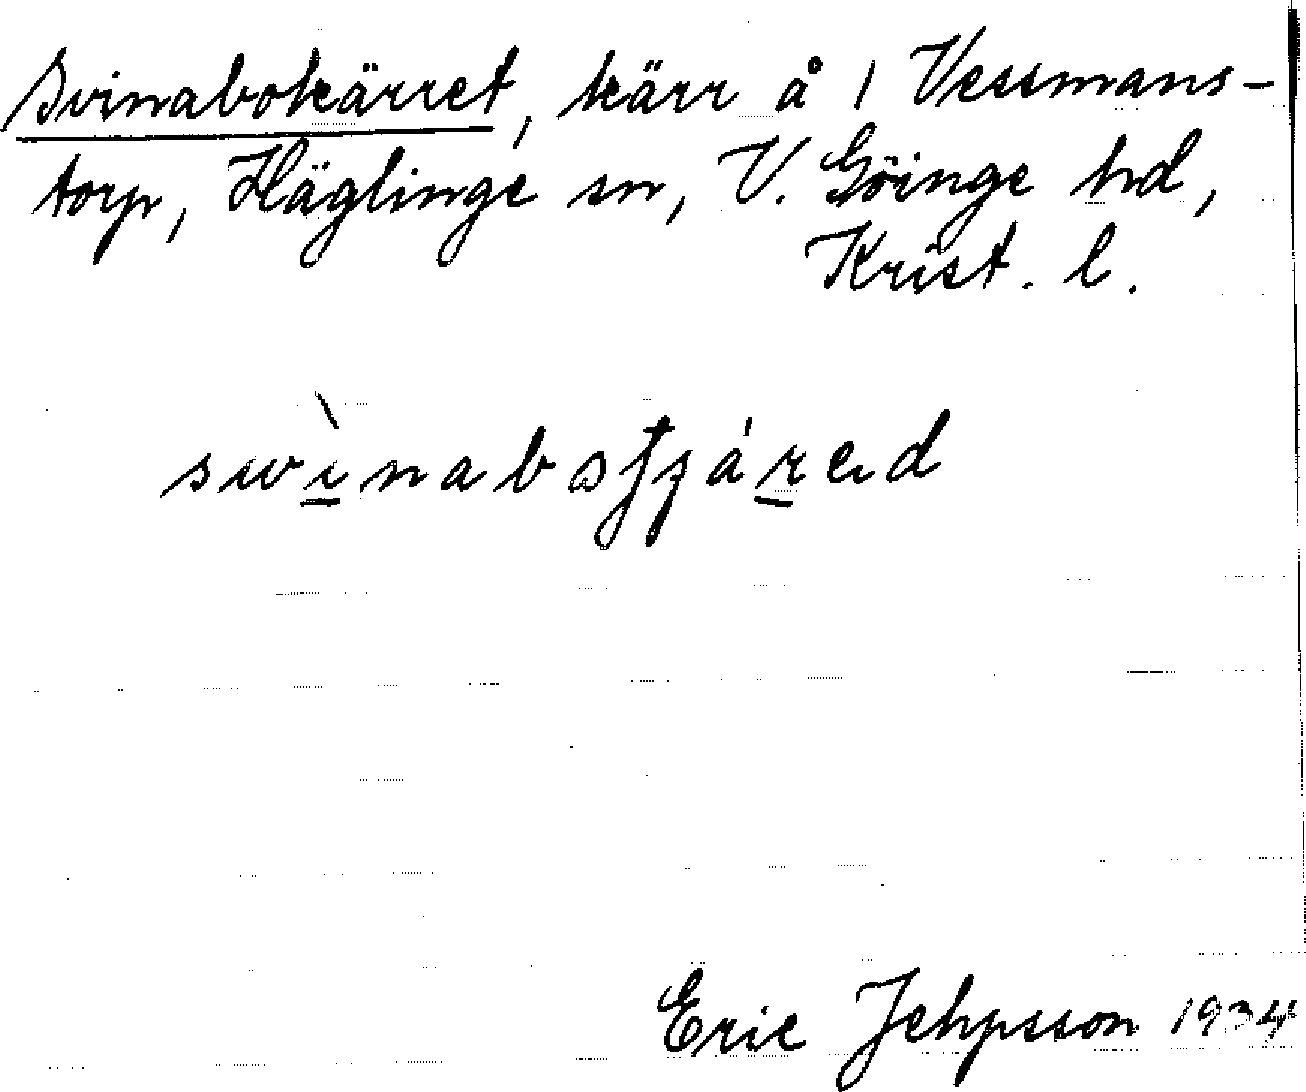 Svinabokärret, kärr å 1 Vessmans-
torp, Häglinge sn, V. Göinge hd,
Krist. l.
Eric Jehpsson 1934